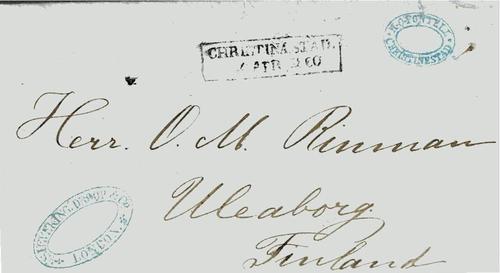 CHRISTINA STAD.
APR. 1860
CHRISTINESTAD
Herr. O. M. Rinman
Uleaborg
Finland
& Co
LONDON.